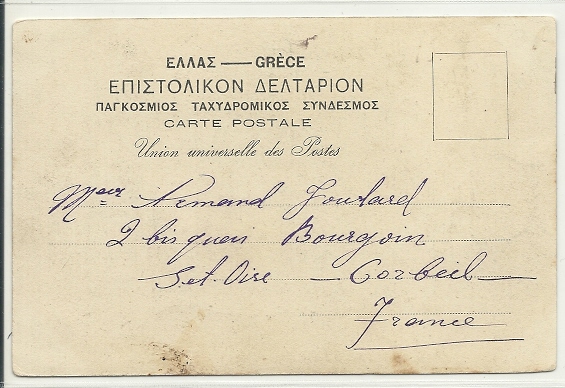 ΕΛΛΑΣ — GRÈCE
ΕΠΙΣΤΟΛΙΚΟΝ ΔΕΛΤΑΡΙΟΝ
ΠΑΓΚΟΣΜΙΟΣ ΤΑΧΥΔΡΟΜΙΚΟΣ ΣΥΝΔΕΣΜΟΣ
CARTE POSTALE
Union universelle des Postes
Armand
2 bis quai Bourgoin
S. et. Oise — Corbeil —
France